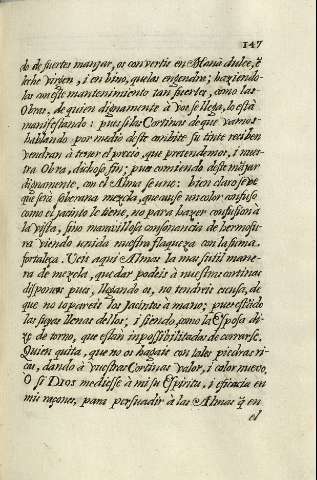 147
do de fuertes manjar, os convertis en Manà dulce, ẽ
leche virgen, i en bino, que las engendre; haziendo-
las con este mantenimiento tan fuertes, como las
Obras, de quien dignamente à vos se llega, lo està
manifestando: pues si las Cortinas de que vamos
hablando por medio deste combite su tinte reciben
vendran à tener el precio, que pretendemos, i nues-
tra Obra, dichoso fin; pues comiendo deste mãjar
dignamente, con el Alma se une: bien claro se ve
que serà soberana mezcla, que cause un color confuso
como el jacinto le tiene, no para hazer confusion à
la vista, sino maravillosa consonancia de hermosu-
ra viendo unida nuestra flaqueza con la suma
fortaleza. Veis aqui Almas la mas sutil mane-
ra de mezcla, que dar podeis à vuestras cortinas
disponeos pues, llegando os, no tendreis escusa, de
que no topareis los Jacintos à mano; pues estãdo
las suyas llenas dellos, i siendo, como la Esposa di-
ze de torno, que estan inpossibilitados de cerrarse.
Quien quita, que no os hagais con tales piedras ri-
cas, dando à vuestras Cortinas valor, i calor nuevo.
O si DIOS me diesse à mi su Espiritu, i eficacia en
mis razones, para persuadir à las Almas q̃ en
el